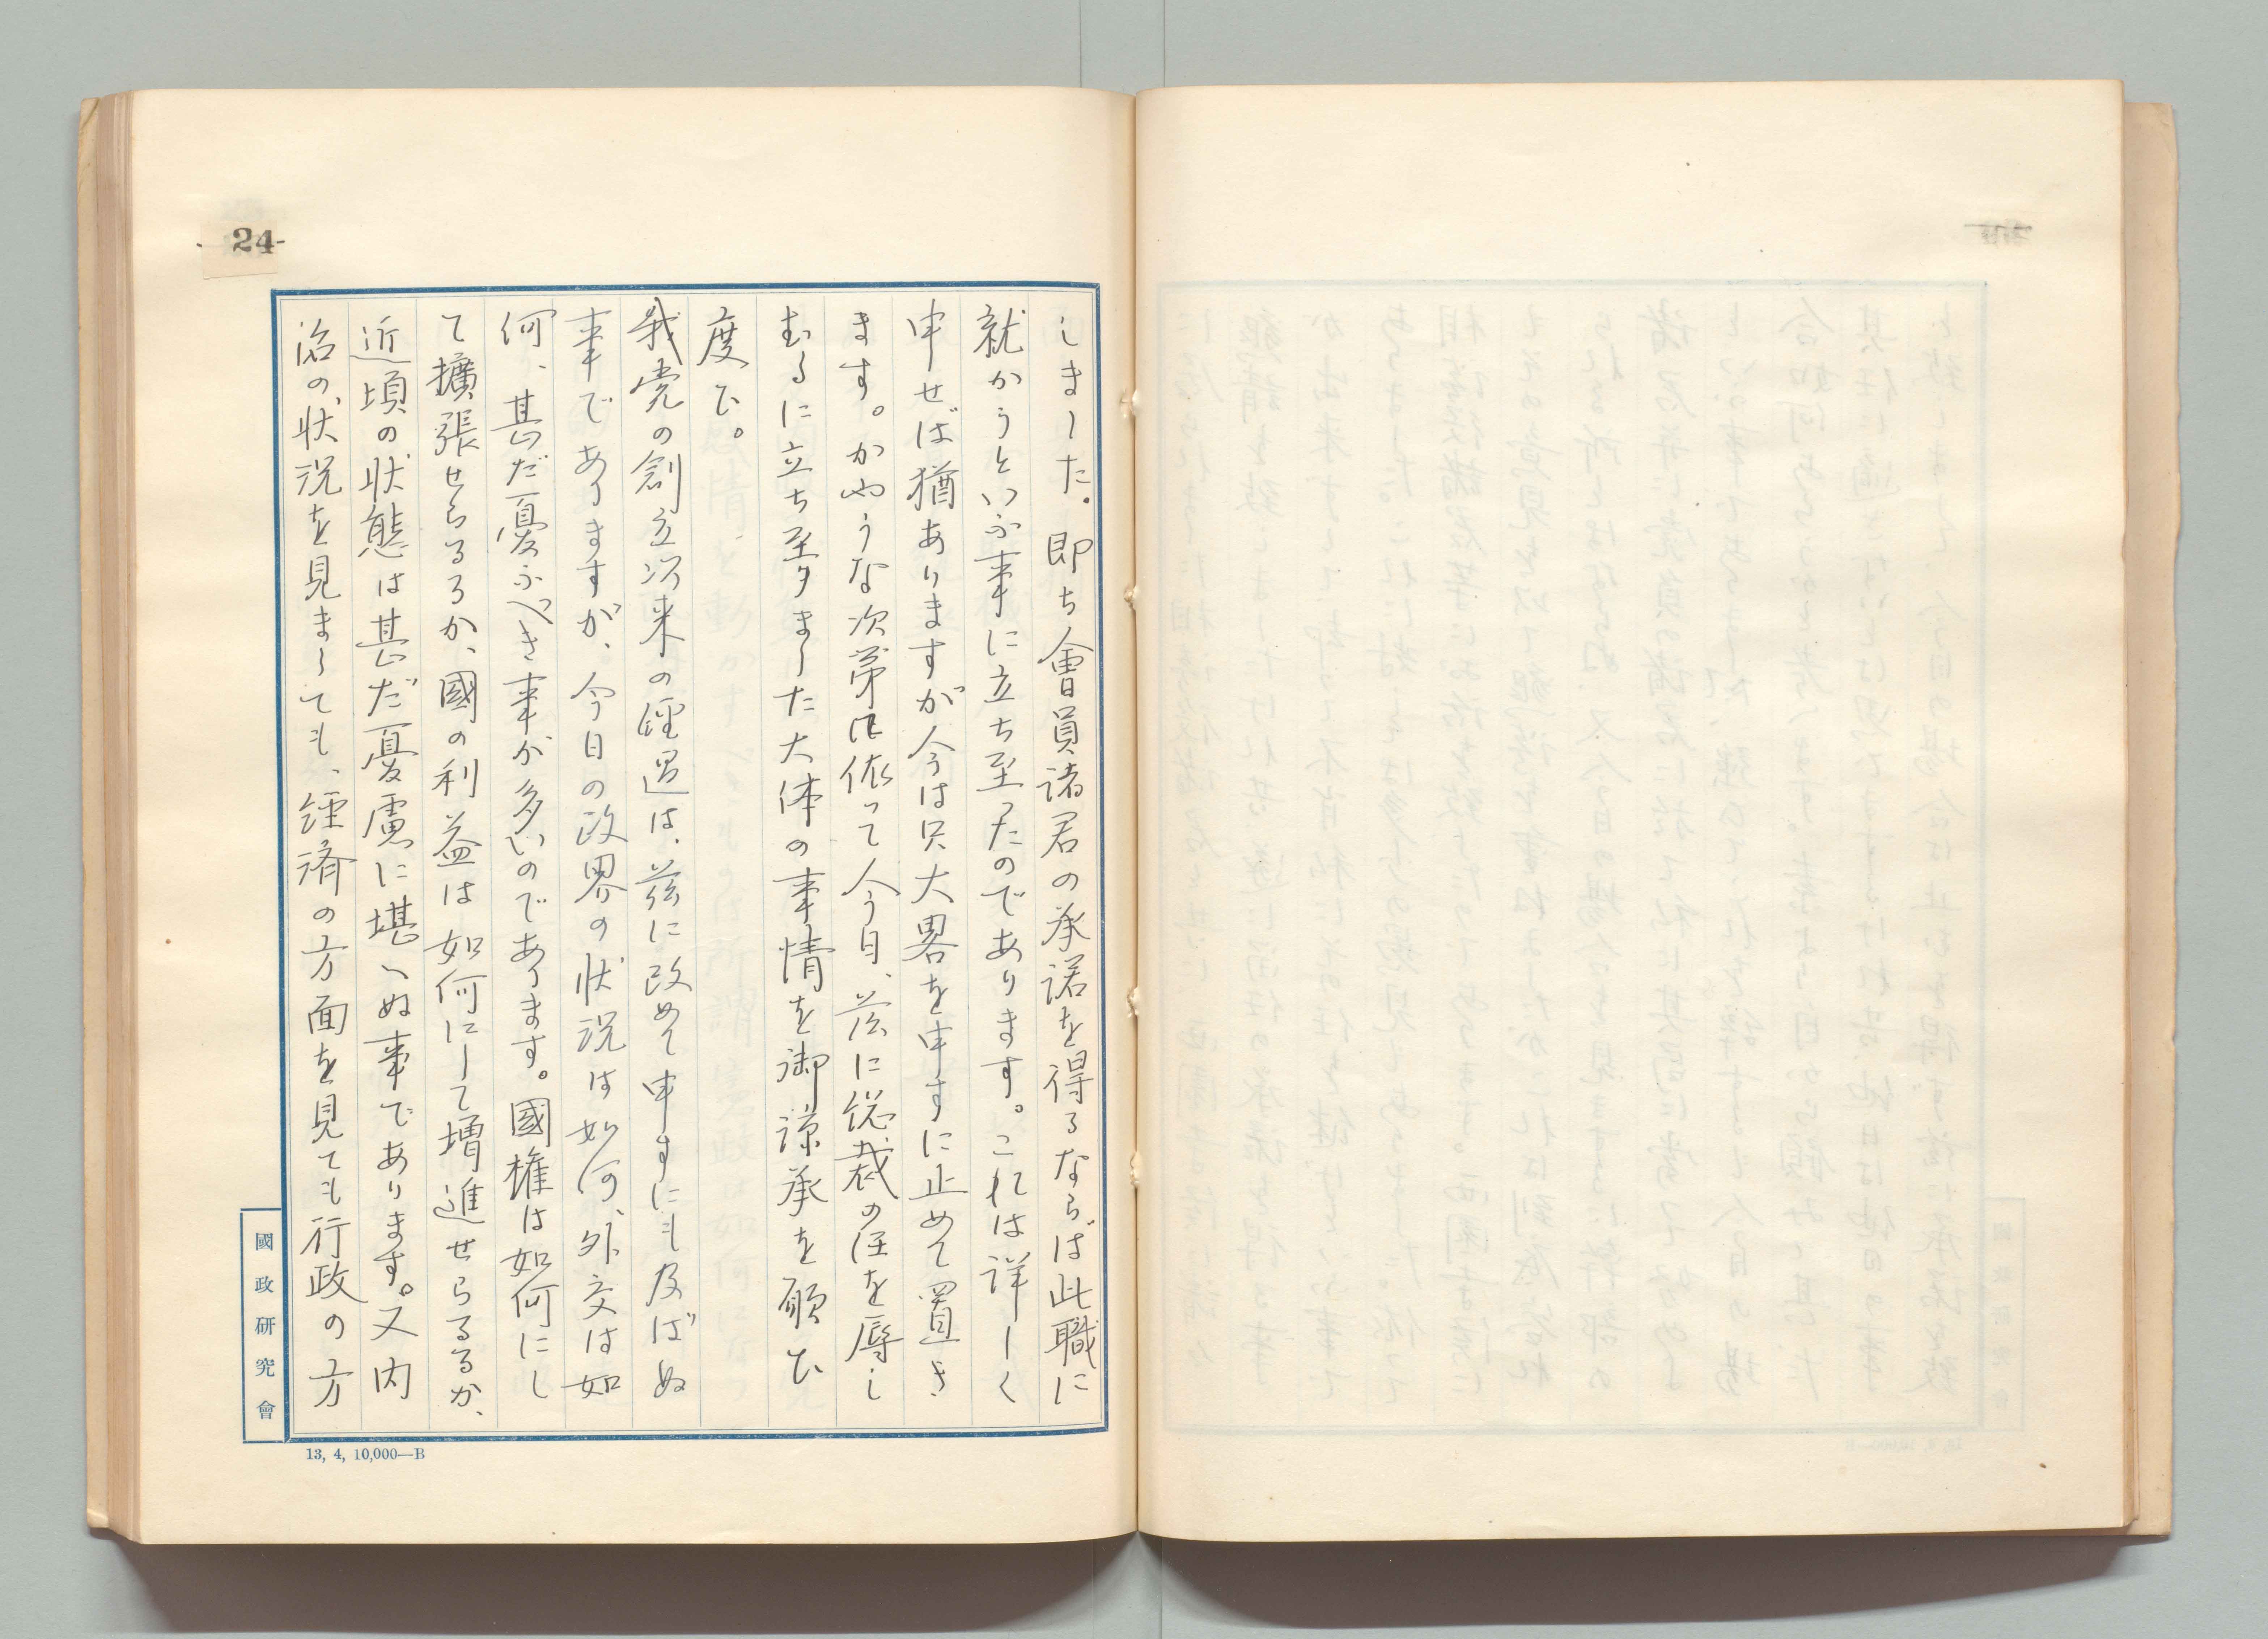 24-
しました。即ち會員諸君の承諾を得るならば此職に
就かうといふ事に立ち至ったのであります。これは詳しく
申せば猶ありますが今は只大畧を申すに止めて置き
ます。かやうな次第に依って今日、茲に総裁の任を辱し
むるに立ち至りました大体の事情を御諒承を願ひ
度で。
我党の創立以来の経過は、茲に改めて申すにも及ばぬ
事でありますが、今日の政界の状況は如何、外交は如
何、甚だ憂ふべき事が多いのであります。國権は如何にし
て擴張せらるるか、國の利益は如何にして増進せらるるか、
近頃の状態は甚だ憂慮に堪へぬ事であります。又内
治の状況を見ましても、経済の方面を見ても行政の方
國政研究會
13, 4, 10,000—B